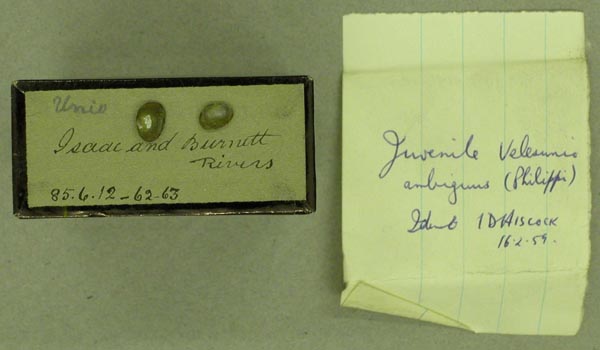 Unio
Isaac and Burnett
Rivers
85.6.12-62.63
Juvenile Velesunio
ambiguus (Philippi)
Ident I D Hiscock
16.2.59.